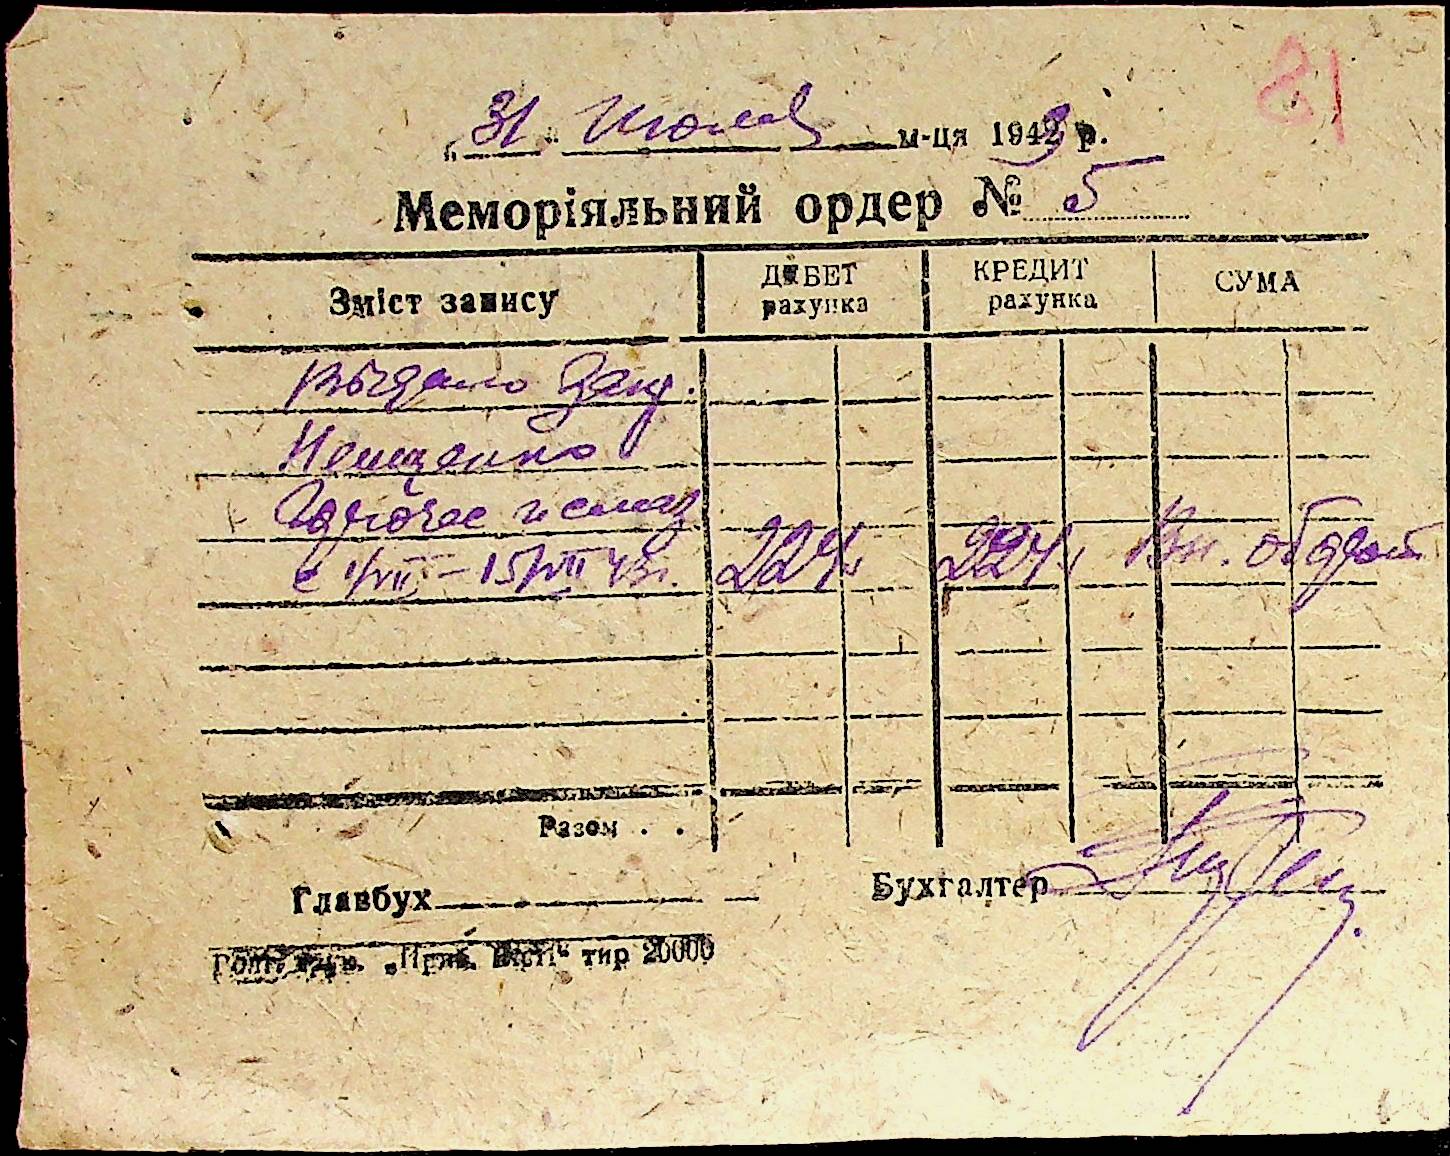 81
„31" Июля м-ця 1943 р.
Меморіяльний ордер № 5
Зміст запису ДЕБЕТ рахунка КРЕДИТ рахунка СУМА
Выдано
Нещенко
Горючее и смаз
с 1/VII – 15/VII 43г. 224 224 Вн. оборот
Разом . .
Главбух Бухгалтер
тир 20000